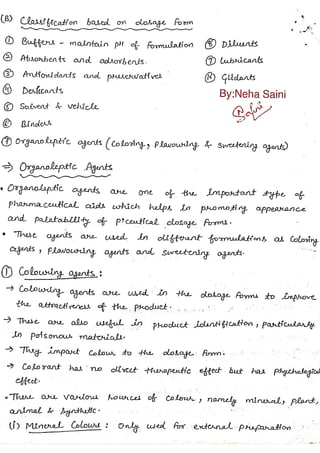 (B) Classification based on dosage form
① Buffers - maintain pH of formulation
② Absorbents and adsorbents.
③ Antioxidants and preservatives
④ Desiccants
⑤ Solvent & vehicle
⑥ Binders
⑧ Diluents
⑨ Lubricants
⑩ Glidants
By:Neha Saini
Saini
⑦ Organoleptic agents (Coloring, flavouring & sweetening agents)
⇒ Organoleptic Agents
• Organoleptic agents are one of the important type of
pharmaceutical aids which helps in promoting appearance
and palatability of p'ceutical dosage forms.
• These agents are used in different formulations as Coloring
agents, flavouring agents and sweetening agents.
① Colouring agents :
→ Colouring agents are used in the dosage forms to improve
the attractiveness of the product.
→ These are also useful in product identification, particularly
in poisonous materials.
→ They impart colour to the dosage form.
→ Colorant has no direct therapeutic effect but has psychological
effect.
• There are various sources of colour, namely mineral, plant,
animal & synthetic.
(i) Mineral Colours : Only used for external preparation